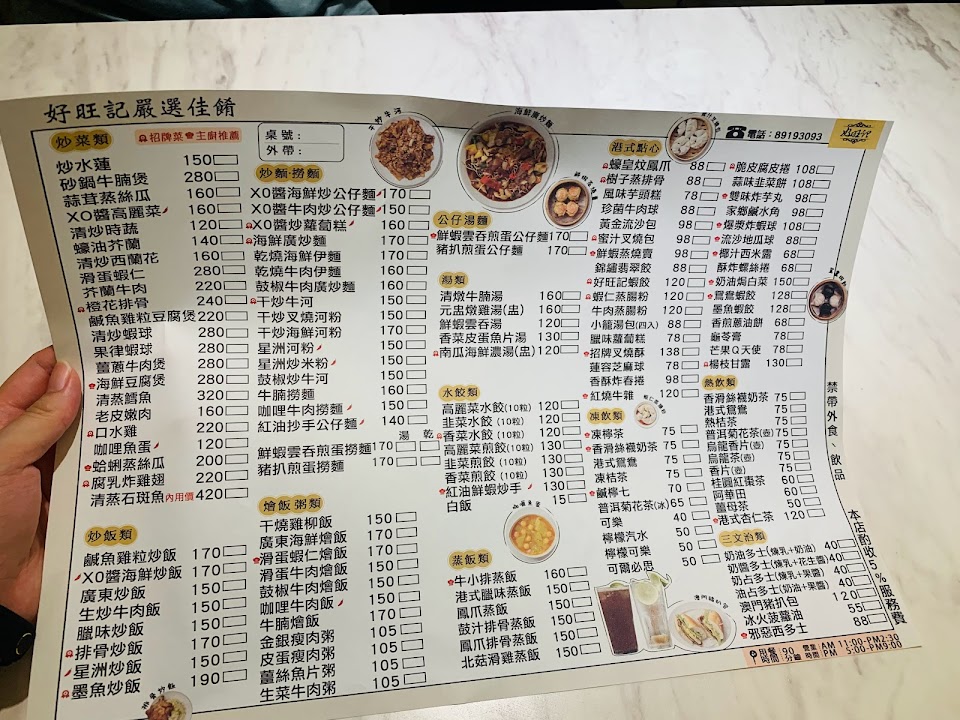 好旺記嚴選佳餚
炒菜類
招牌菜 主廚推薦
炒水蓮 150
砂鍋牛腩煲 280
蒜茸蒸絲瓜 160
XO醬高麗菜 160
清炒時蔬 120
蠔油芥蘭 140
清炒西蘭花 160
滑蛋蝦仁 280
芥蘭牛肉 220
橙花排骨 240
鹹魚雞粒豆腐煲 220
清炒蝦球 280
果律蝦球 280
薑蔥牛肉煲 280
海鮮豆腐煲 280
清蒸鱈魚 320
老皮嫩肉 160
口水雞 220
咖哩魚蛋 120
蛤蜊蒸絲瓜 200
腐乳炸雞翅 220
清蒸石斑魚 內用價 420
炒飯類
鹹魚雞粒炒飯 170
XO醬海鮮炒飯 170
廣東炒飯 150
生炒牛肉飯 150
臘味炒飯 150
排骨炒飯 150
星洲炒飯 150
墨魚炒飯 190
桌號:
外帶:
炒麵·撈麵
XO醬海鮮炒公仔麵 170
XO醬牛肉炒公仔麵 150
XO醬炒蘿蔔糕 160
海鮮廣炒麵 170
乾燒海鮮伊麵 170
乾燒牛肉伊麵 160
鼓椒牛肉廣炒麵 160
干炒牛河 150
干炒叉燒河粉 150
干炒海鮮河粉 170
星洲河粉 150
星洲炒米粉 150
鼓椒炒牛河 150
牛腩撈麵 160
咖哩牛肉撈麵 150
紅油抄手公仔麵 140
湯 乾
鮮蝦雲吞煎蛋撈麵 170
豬扒煎蛋撈麵 170
燴飯粥類
干燒雞柳飯 150
廣東海鮮燴飯 170
滑蛋蝦仁燴飯 170
滑蛋牛肉燴飯 150
鼓椒牛肉燴飯 150
咖哩牛肉飯 150
牛腩燴飯 170
金銀瘦肉粥 105
皮蛋瘦肉粥 105
薑絲魚片粥 105
生菜牛肉粥 105
干炒牛河
海鮮廣炒麵
公仔湯麵
鮮蝦雲吞煎蛋公仔麵 170
豬扒煎蛋公仔麵 170
湯類
清燉牛腩湯 160
元盅燉雞湯(盅) 160
鮮蝦雲吞湯 120
香菜皮蛋魚片湯 130
南瓜海鮮濃湯(盅) 120
水餃類
高麗菜水餃(10粒) 120
韭菜水餃(10粒) 120
香菜水餃(10粒) 120
高麗菜煎餃(10粒) 130
韭菜煎餃(10粒) 130
香菜煎餃(10粒) 130
紅油鮮蝦炒手 130
白飯 15
蒸飯類
牛小排蒸飯 160
港式臘味蒸飯 150
鳳爪蒸飯 150
鼓汁排骨蒸飯 150
鳳爪排骨蒸飯 150
北菇滑雞蒸飯 150
電話:89193093
港式點心
蠔皇炆鳳爪 88
樹子蒸排骨 88
風味芋頭糕 78
珍菌牛肉球 88
黃金流沙包 98
蜜汁叉燒包 98
鮮蝦蒸燒賣 98
錦繡翡翠餃 88
好旺記蝦餃 120
蝦仁蒸腸粉 120
牛肉蒸腸粉 120
小龍湯包(四入) 88
臘味蘿蔔糕 78
招牌叉燒酥 138
蓮容芝麻球 78
香酥炸春捲 98
紅燒牛雜 120
脆皮腐皮捲 108
蒜味韭菜餅 108
雙味炸芋丸 98
家鄉鹹水角 98
爆漿炸蝦球 108
流沙地瓜球 88
椰汁西米露 68
酥炸螺絲捲 68
奶油焗白菜 150
鴛鴦蝦餃 128
墨魚蝦餃 128
香煎蔥油餅 68
龜苓膏 78
芒果Q天使 78
楊枝甘露 130
凍飲類
凍檸茶 75
香滑絲襪奶茶 75
港式鴛鴦 75
凍桔茶 75
鹹檸七 70
普洱菊花茶(冰) 65
可樂 40
檸檬汽水 50
檸檬可樂 50
可爾必思 50
熱飲類
香滑絲襪奶茶 75
港式鴛鴦 75
熱桔茶 75
普洱菊花茶(壺) 75
烏龍香片(壺) 75
烏龍茶(壺) 75
香片(壺) 75
桂圓紅棗茶 60
阿華田 60
薑母茶 50
港式杏仁茶 120
三文治類
奶油多士(煉乳+奶油) 40
奶醬多士(煉乳+花生醬) 40
奶占多士(煉乳+果醬) 40
油占多士(奶油+果醬) 40
澳門豬扒包 120
冰火菠蘿油 55
邪惡西多士 88
禁帶外食、飲品
本店酌收5%服務費
用餐時間:90分鐘 營業時間 AM 11:00-PM2:30 PM 5:00-PM9:00